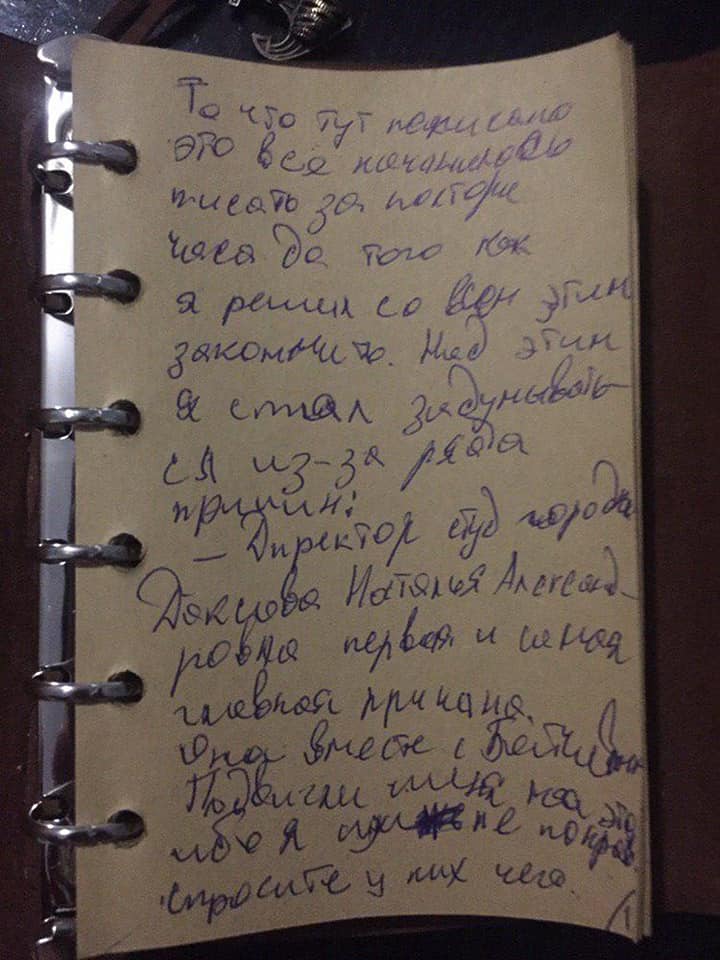 То что тут написано
это все начиналось
писать за полтора
часа до того как
я решил со всем этим
закончить. Над этим
я стал задумывать-
ся из-за ряда
причин:
– Директор студ городка
Наталья Александ-
ровна первая и самая
главная причина.
Она вместе с
Подвигли меня на это
ибо я им не понрав.
спросите у них чего.
1